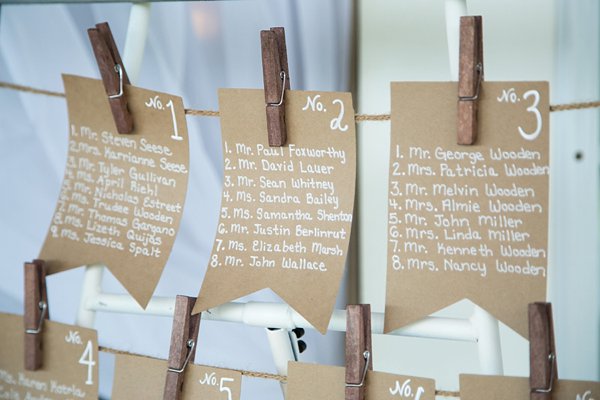 No. 1
1. Mr. Steven Seese
2. Mrs. Karrianne Seese
3. Mr. Tyler Gullivan
4. Ms. April Riehl
5. Mr. Nicholas Estreet
6. Ms. Trudee Wooden
7. Mr. Thomas Gargano
8. Ms. Lizeth Quijas
9. Ms. Jessica Spalt
No. 2
1. Mr. Paul Foxworthy
2. Mr. David Lauer
3. Mr. Sean Whitney
4. Ms. Sandra Bailey
5. Ms. Samantha Shenton
6. Mr. Justin Berlinrut
7. Ms. Elizabeth Marsh
8. Mr. John Wallace
No. 3
1. Mr. George Wooden
2. Mrs. Patricia Wooden
3. Mr. Melvin Wooden
4. Mrs. Almie Wooden
5. Mr. John Miller
6. Mrs. Linda Miller
7. Mr. Kenneth Wooden
8. Mrs. Nancy Wooden
No. 4
Ms. Karen
No. 5
No.
No.